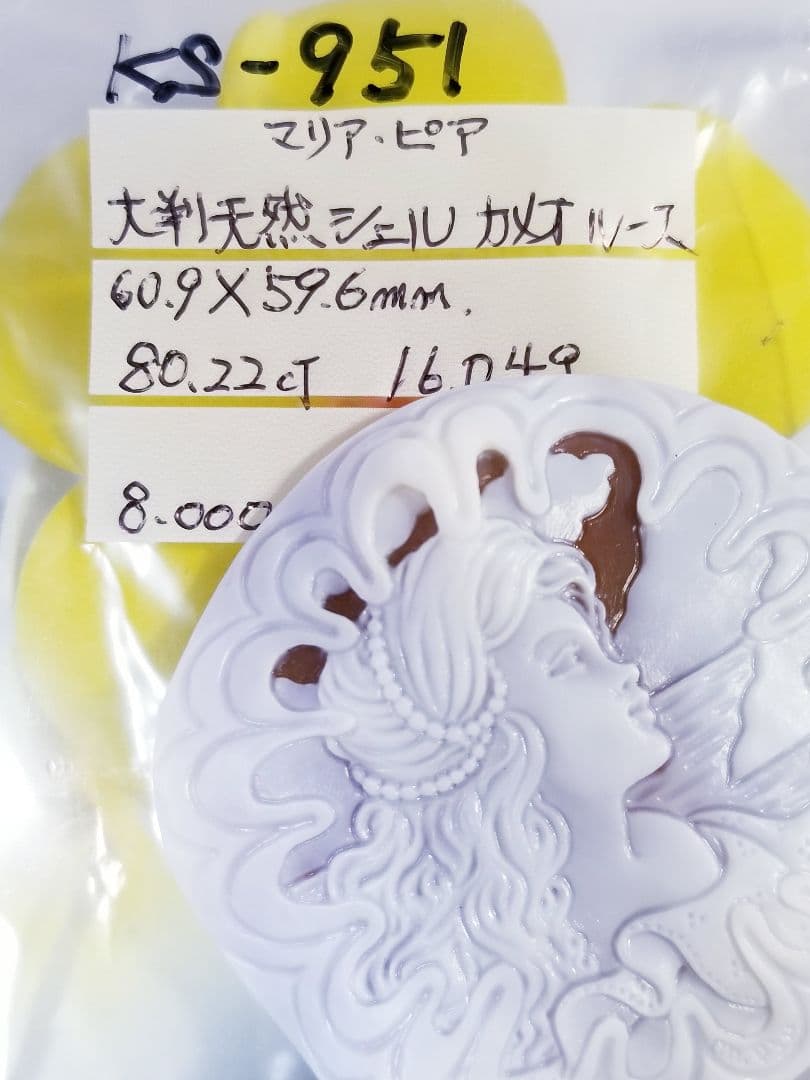 KS-951
マリア・ピア
大判天然シェルカメオルース
60.9×59.6mm.
80.22ct 16.04g
8.000